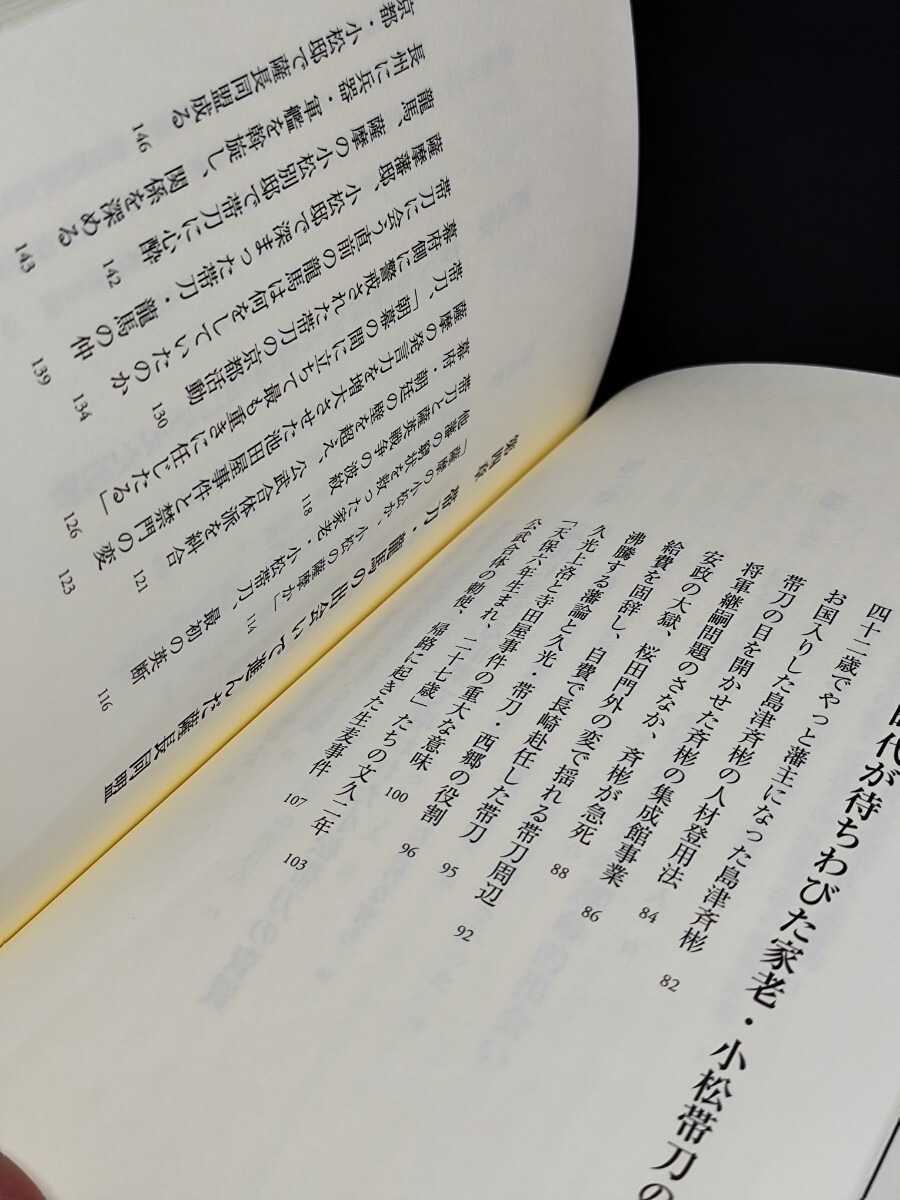 代が待ちわびた家老・小松帯刀の
四十二歳でやっと藩主になった島津斉彬 82
お国入りした島津斉彬の人材登用法 84
帯刀の目を開かせた斉彬の集成館事業 86
将軍継嗣問題のさなか、斉彬が急死 88
安政の大獄、桜田門外の変で揺れる帯刀周辺 92
給費を固辞し、自費で長崎赴任した帯刀 95
沸騰する藩論と久光・帯刀・西郷の役割 96
久光上洛と寺田屋事件の重大な意味 100
「天保六年生まれ、二十七歳」たちの文久二年 103
公武合体の勅使、帰路に起きた生麦事件 107
第四章 帯刀・龍馬の出会いで進んだ薩長同盟
「薩摩の小松か、小松の薩摩か」 114
他藩の窮状を救った家老・小松帯刀、最初の英断 116
帯刀と薩英戦争の波紋 118
幕府・朝廷の壁を超え、公武合体派を糾合 121
薩摩の発言力を増大させた池田屋事件と禁門の変 123
帯刀、「朝幕の間に立ちて最も重きに任じたる」 126
幕府側に警戒された帯刀の京都活動 130
帯刀に会う直前の龍馬は何をしていたのか 134
薩摩藩邸、小松邸で深まった帯刀・龍馬の仲 139
龍馬、薩摩の小松別邸で帯刀に心酔 142
長州に兵器・軍艦を斡旋し、関係を深める 143
京都・小松邸で薩長同盟成る 146